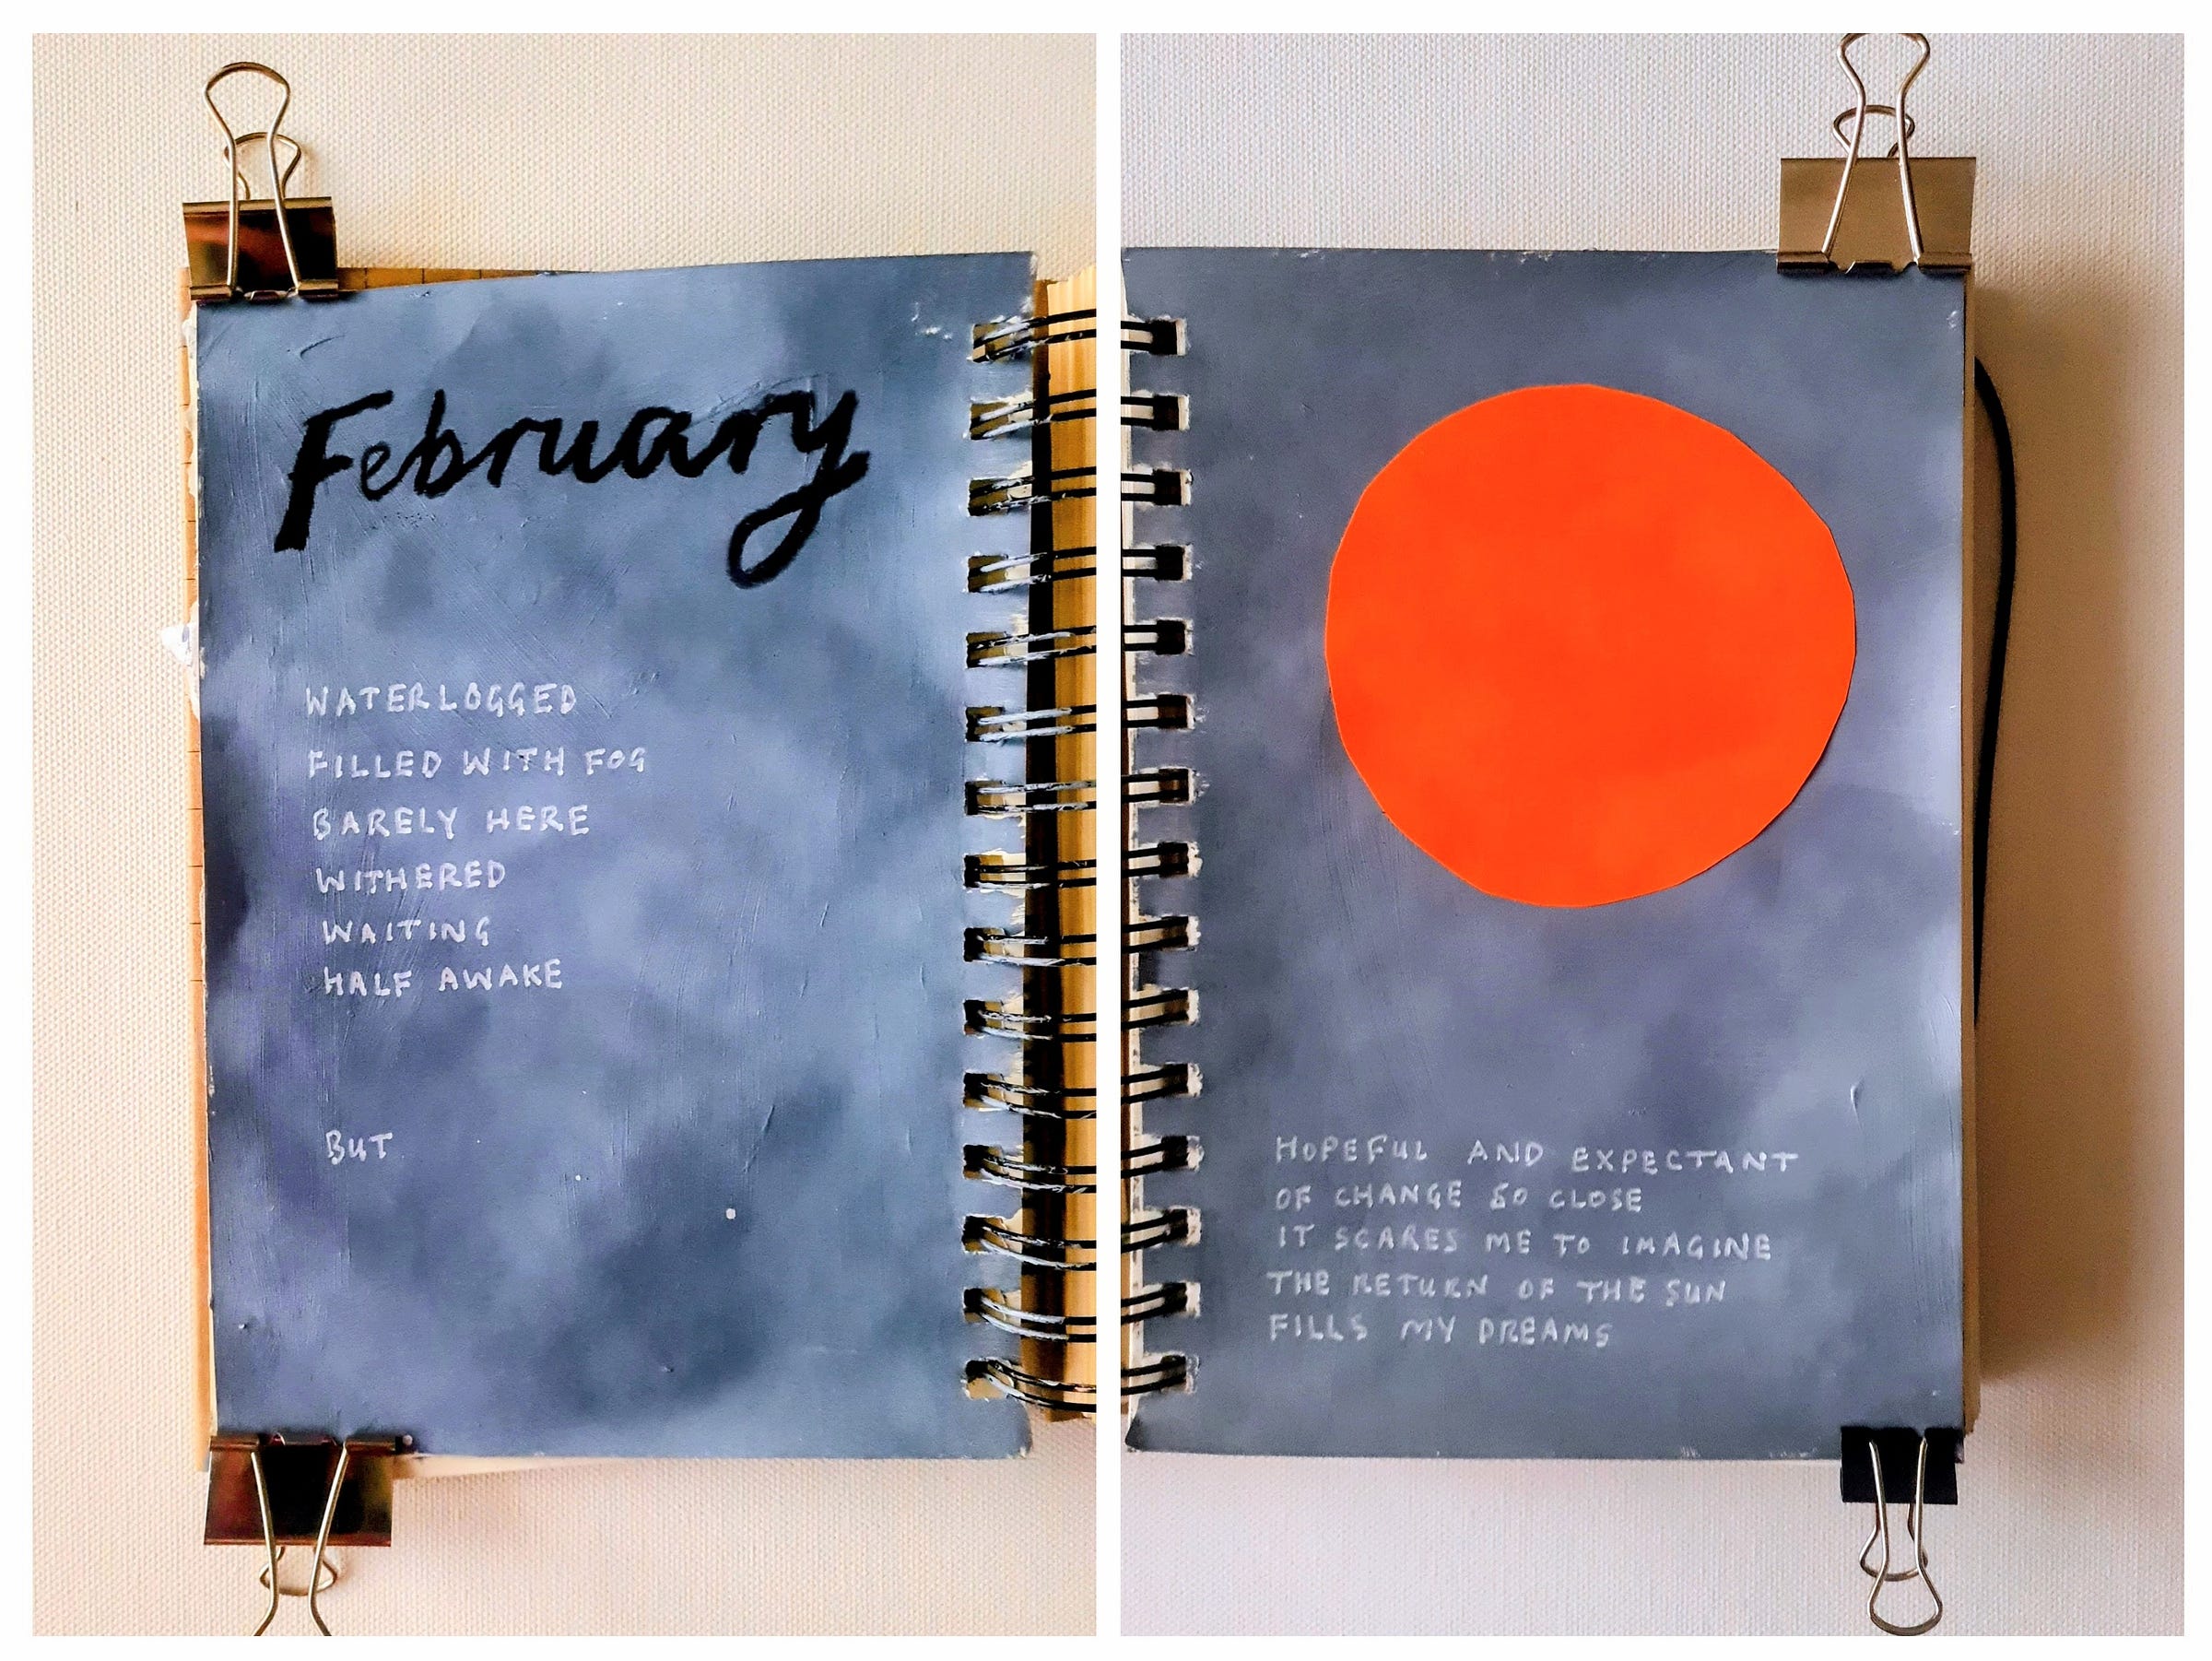 February
WATERLOGGED
FILLED WITH FOG
BARELY HERE
WITHERED
WAITING
HALF AWAKE
BUT
HOPEFUL AND EXPECTANT
OF CHANGE SO CLOSE
IT SCARES ME TO IMAGINE
THE RETURN OF THE SUN
FILLS MY DREAMS